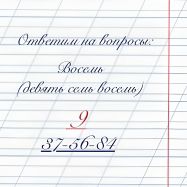 Ответим на вопросы:
Восемь
(девять семь восемь)
9
37-56-84